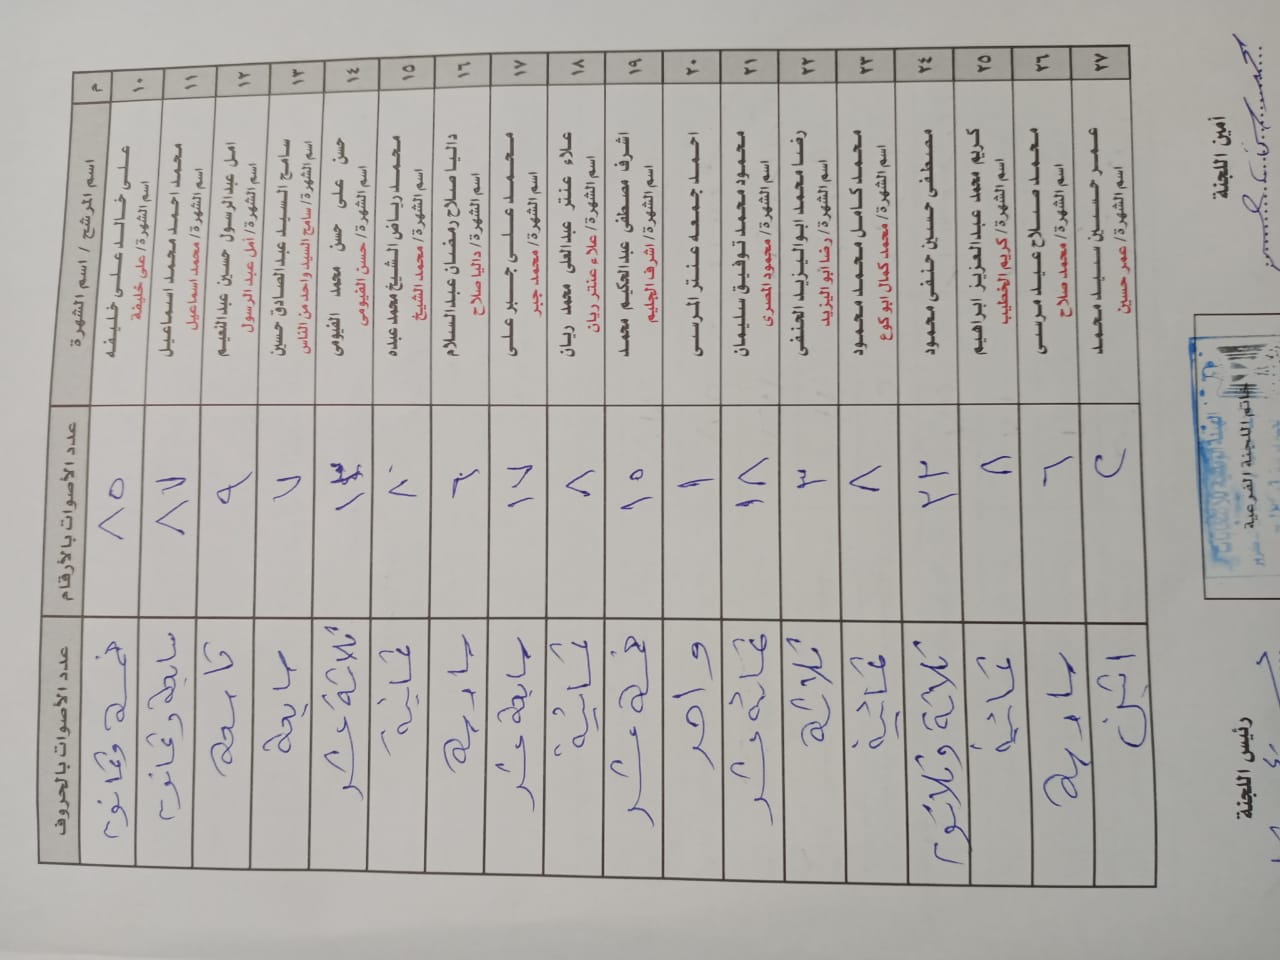 م	اسم المرشح / اسم الشهرة	عدد الأصوات بالأرقام	عدد الأصوات بالحروف
١٠	على خالد على خليفه	٨٥	خمسة وثمانون
اسم الشهرة / على خليفة
١١	محمد احمد محمد اسماعيل	٨٧	سابعة وثمانون
اسم الشهرة / محمد اسماعيل
١٢	امل عبد الرسول حسين عبد النعيم	٩	تاسعة
اسم الشهرة / أمل عبد الرسول
١٣	سامح السيد عبد الصادق حسين	٧	سابعة
اسم الشهرة / سامح السيد واحد من الناس
١٤	حسن على حسن محمد الفيومى	١٣	ثلاثة عشر
اسم الشهرة / حسن الفيومى
١٥	محمد رياض الشيخ محمد عبده	٨	ثمانية
اسم الشهرة / محمد الشيخ
١٦	داليا صلاح رمضان عبد السلام	٦	سادسة
اسم الشهرة / داليا صلاح
١٧	محمد على جبر على	١٧	سابعة عشر
اسم الشهرة / محمد جبر
١٨	علاء عنتر عبد العلى محمد ريان	٨	ثمانية
اسم الشهرة / علاء عنتر ريان
١٩	اشرف مصطفى عبد الحكيم محمد	١٥	خمسة عشر
اسم الشهرة / اشرف الجليم
٢٠	احمد جمعه عنتر المرسى	١	واحد
٢١	محمود محمد توفيق سليمان	١٨	ثمانية عشر
اسم الشهرة / محمود المصرى
٢٢	رضا محمد ابو اليزيد الحنفى	٣	ثلاثة
اسم الشهرة / رضا ابو اليزيد
٢٣	محمد كامل محمد محمود	٨	ثمانية
اسم الشهرة / محمد كمال ابو كوع
٢٤	مصطفى حسين حنفى محمود	٣٣	ثلاثة وثلاثون
٢٥	كريم محمد عبد العزيز ابراهيم	٨	ثمانية
اسم الشهرة / كريم الخطيب
٢٦	محمد صلاح عيد مرسى	٦	سادسة
اسم الشهرة / محمد صلاح
٢٧	عمر حسين سيد محمد	٢	اثنين
اسم الشهرة / عمر حسين
أمين اللجنة
خاتم اللجنة الفرعية
رئيس اللجنة